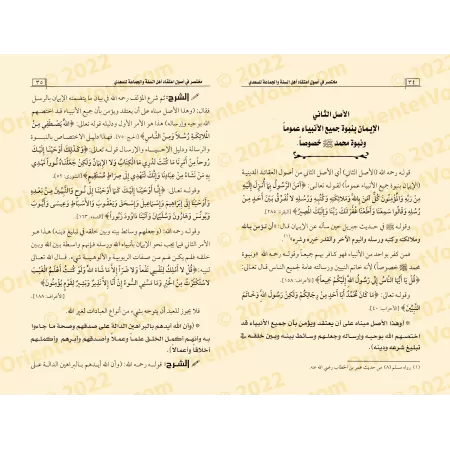 ٣٤
مختصر في أصول اعتقاد أهل السنة والجماعة للسعدي
الأصل الثاني
الإيمان بنبوة جميع الأنبياء عموماً
ونبوة محمد ﷺ خصوصاً.
قوله رحمه الله (الأصل الثاني) أي الأصل الثاني من أصول العقائد الدينية
(الإيمان بنبوة جميع الأنبياء عموماً) لقوله تعالى: ﴿آمَنَ الرَّسُولُ بِمَا أُنزِلَ إِلَيْهِ
مِن رَّبِّهِ وَالْمُؤْمِنُونَ كُلٌّ آمَنَ بِاللَّهِ وَمَلَائِكَتِهِ وَكُتُبِهِ وَرُسُلِهِ لَا نُفَرِّقُ بَيْنَ أَحَدٍ مِّن
رُّسُلِهِ وَقَالُوا سَمِعْنَا وَأَطَعْنَا غُفْرَانَكَ رَبَّنَا وَإِلَيْكَ الْمَصِيرُ﴾ [البقرة: ٢٨٥]
وقوله ﷺ في حديث جبريل حين سأله عن الإيمان قال: «أن تؤمن بالله
وملائكته وكتبه ورسله واليوم الآخر والقدر خيره وشره»(١).
فمن كفر بواحد من الأنبياء فهو كافر بهم جميعاً وقوله رحمه الله (ونبوة
محمد ﷺ خصوصاً) لأنه خاتم النبيين ورسالته عامة لجميع الناس قال تعالى:
﴿قُلْ يَا أَيُّهَا النَّاسُ إِنِّي رَسُولُ اللَّهِ إِلَيْكُمْ جَمِيعاً﴾ [الأعراف: ١٥٨].
وقوله تعالى: ﴿مَّا كَانَ مُحَمَّدٌ أَبَا أَحَدٍ مِّن رِّجَالِكُمْ وَلَكِن رَّسُولَ اللَّهِ وَخَاتَمَ
النَّبِيِّينَ﴾ [الأحزاب: ٤٠]
(وهذا الأصل مبناه على أن يعتقد، ويؤمن بأن جميع الأنبياء قد
اختصهم الله بوحيه وإرساله وجعلهم وسائط بينه وبين خلقه في
تبليغ شرعه ودينه).
(١) رواه مسلم (٨) من حديث عمر بن الخطاب رضي الله عنه.
مختصر في أصول اعتقاد أهل السنة والجماعة للسعدي
٣٥
الشرح: ثم شرع المؤلف رحمه الله في بيان ما يتضمنه الإيمان بالرسل
فقال: (وهذا الأصل مبناه على أن يعتقد ويؤمن بأن جميع الأنبياء قد اختصهم الله
بوحيه وإرساله) هذا هو الأمر الأول ودليله قوله تعالى: ﴿اللَّهُ يَصْطَفِي مِنَ
الْمَلَائِكَةِ رُسُلاً وَمِنَ النَّاسِ﴾ [الحج: ٧٥]. فهذا دليل الاختصاص بالنبوة
والرسالة ودليل الإرسال قوله تعالى: ﴿وَكَذَلِكَ أَوْحَيْنَا إِلَيْكَ
رُوحاً مِّنْ أَمْرِنَا مَا كُنتَ تَدْرِي مَا الْكِتَابُ وَلَا الْإِيمَانُ وَلَكِن جَعَلْنَاهُ نُوراً نَّهْدِي
بِهِ مَنْ نَّشَاءُ مِنْ عِبَادِنَا وَإِنَّكَ لَتَهْدِي إِلَى صِرَاطٍ مُّسْتَقِيمٍ﴾ [الشورى: ٥٢]
وقوله تعالى: ﴿إِنَّا أَوْحَيْنَا إِلَيْكَ كَمَا أَوْحَيْنَا إِلَى نُوحٍ وَالنَّبِيِّينَ مِن بَعْدِهِ
وَأَوْحَيْنَا إِلَى إِبْرَاهِيمَ وَإِسْمَاعِيلَ وَإِسْحَاقَ وَيَعْقُوبَ وَالْأَسْبَاطِ وَعِيسَى وَأَيُّوبَ
وَيُونُسَ وَهَارُونَ وَسُلَيْمَانَ وَآتَيْنَا دَاوُودَ زَبُوراً﴾ [النساء: ١٦٣].
وقوله رحمه الله: (وجعلهم وسائط بينه وبين خلقه في تبليغ دينه) هذا هو
الأمر الثاني
خلقه فلم يكن لهم من صفات الربوبية والألوهية شيء. قال الله تعالى
لنبيه: ﴿قُل لَّا أَمْلِكُ لِنَفْسِي نَفْعاً وَلَا ضَرّاً إِلَّا مَا شَاءَ اللَّهُ وَلَوْ كُنتُ أَعْلَمُ الْغَيْبَ
لَاسْتَكْثَرْتُ مِنَ الْخَيْرِ وَمَا مَسَّنِيَ السُّوءُ إِنْ أَنَا إِلَّا نَذِيرٌ وَبَشِيرٌ لِّقَوْمٍ يُؤْمِنُونَ﴾
[الأعراف: ١٨٨].
فلا يجوز للعبد أن يتوجه بشيء من أنواع العبادات لغير الله.
(وأن الله أيدهم بالبراهين الدالة على صدقهم وصحة ما جاءوا
به وأنهم أكمل الخلق علماً وعملاً وأصدقهم وأبرهم وأكملهم
أخلاقاً وأعمالاً).
الشرح: قوله رحمه الله: (وأن الله أيدهم بالبراهين الدالة على
© 2022